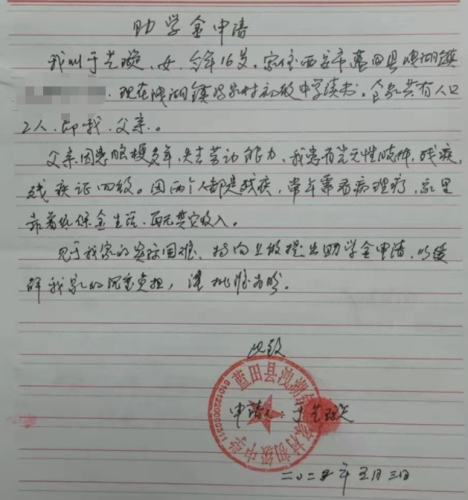 助学金申请
我叫于艺璇,女,今年16岁,家住西安市蓝田县洩湖镇
现在洩湖镇 初级中学读书,全家共有人口
2人,即我、父亲。
父亲因患脑梗多年,失去劳动能力,我患有先天性 残疾,
残疾证四级。因两个人都是残疾,常年需看病理疗,家里
靠着低保金生活,再无其它收入。
见于我家的实际困难,特向上级提出助学金申请,以缓
解我家的沉重负担,望批准为盼。
此致
蓝田县洩湖镇 村初级中学
申请人 于艺璇
二〇二 年五月三日